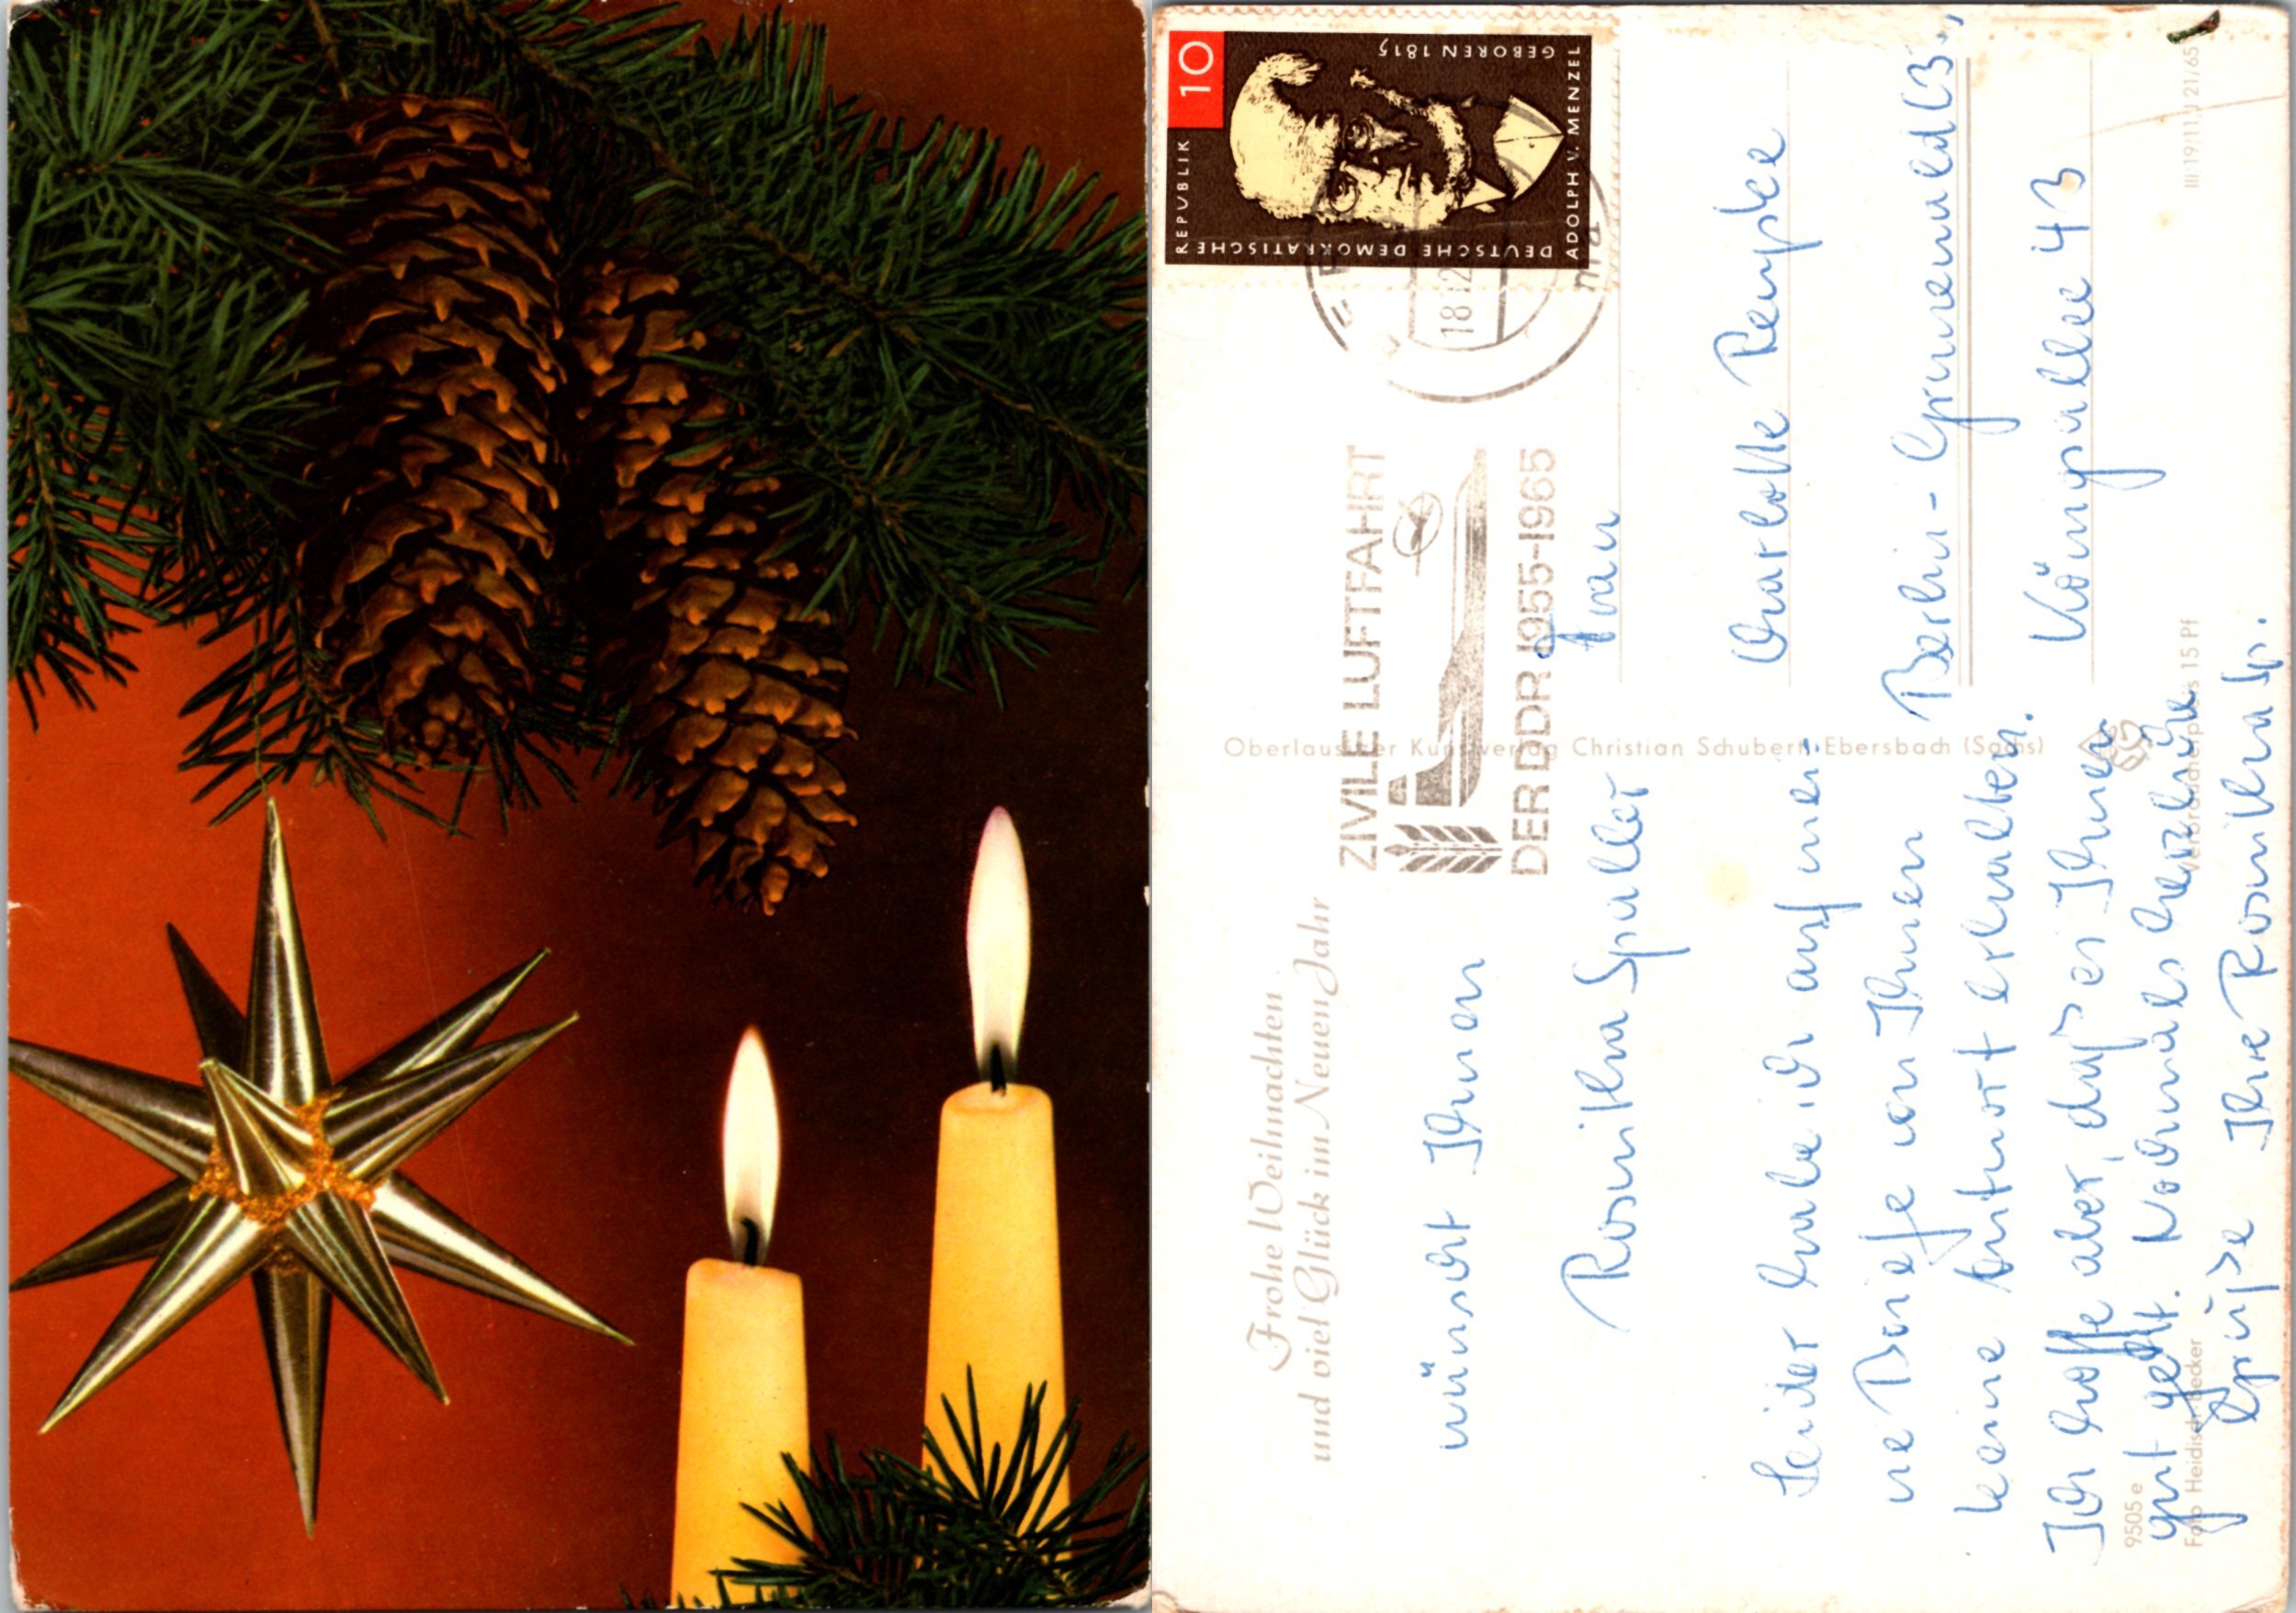 Frohe Weihnachten
und viel Glück im Neuen Jahr
wünscht Ihnen
Roswitha Spaller
Leider habe ich auf mei-
ne Briefe an Ihnen
keine Antwort erhalten.
Ich hoffe aber, daß es Ihnen
gut geht. Nochmals herzliche
Grüße Ihre Roswitha Sp.
9505 e
Foto Heidisch-Becker
Oberlausitzer Kunstverlag Christian Schubert, Ebersbach (Sachs)
Verbraucherpreis 15 Pf
III 19/11 J 21/65
ZIVILE LUFTFAHRT
DER DDR 1955-1965
18.12
10
DEUTSCHE DEMOKRATISCHE
REPUBLIK
ADOLPH V. MENZEL
GEBOREN 1815
Frau
Charlotte
Berlin-Grunewald
Königsallee 43